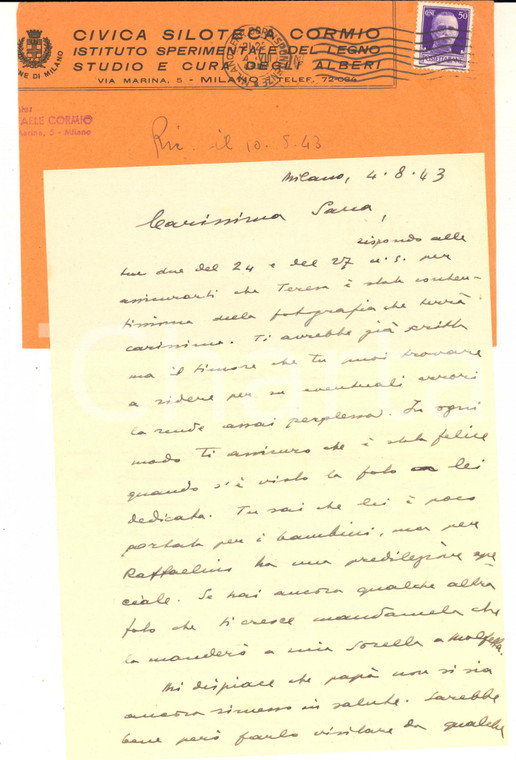 CIVICA SILOTECA CORMIO
ISTITUTO SPERIMENTALE DEL LEGNO
STUDIO E CURA DEGLI ALBERI
VIA MARINA, 5 - MILANO - TELEF. 72-086
NE DI MILANO
AELE CORMIO
Marina, 5 - Milano
POSTE ITALIANE
CENT. 50
Ric. il 10.8.43
Milano, 4.8.43
Carissima Sara,
rispondo alle
tue due del 24 e del 27 u.s. per
assicurarti che Teresa è stata conten-
tissima della fotografia che terrà
carissima. Ti avrebbe già scritto
ma il timore che tu puoi trovare
a ridere per su eventuali errori
la rende assai perplessa. In ogni
modo ti assicuro che è stata felice
quando s'è vista la foto a lei
dedicata. Tu sai che lei è poco
portata per i bambini, ma per
Raffaelino ha una predilezione spe-
ciale. Se hai ancora qualche altra
foto che ti cresce mandamela che
la manderò a mia sorella a Molfetta.
Mi dispiace che papà non si sia
ancora rimesso in salute. Sarebbe
bene però farlo visitare da qualche